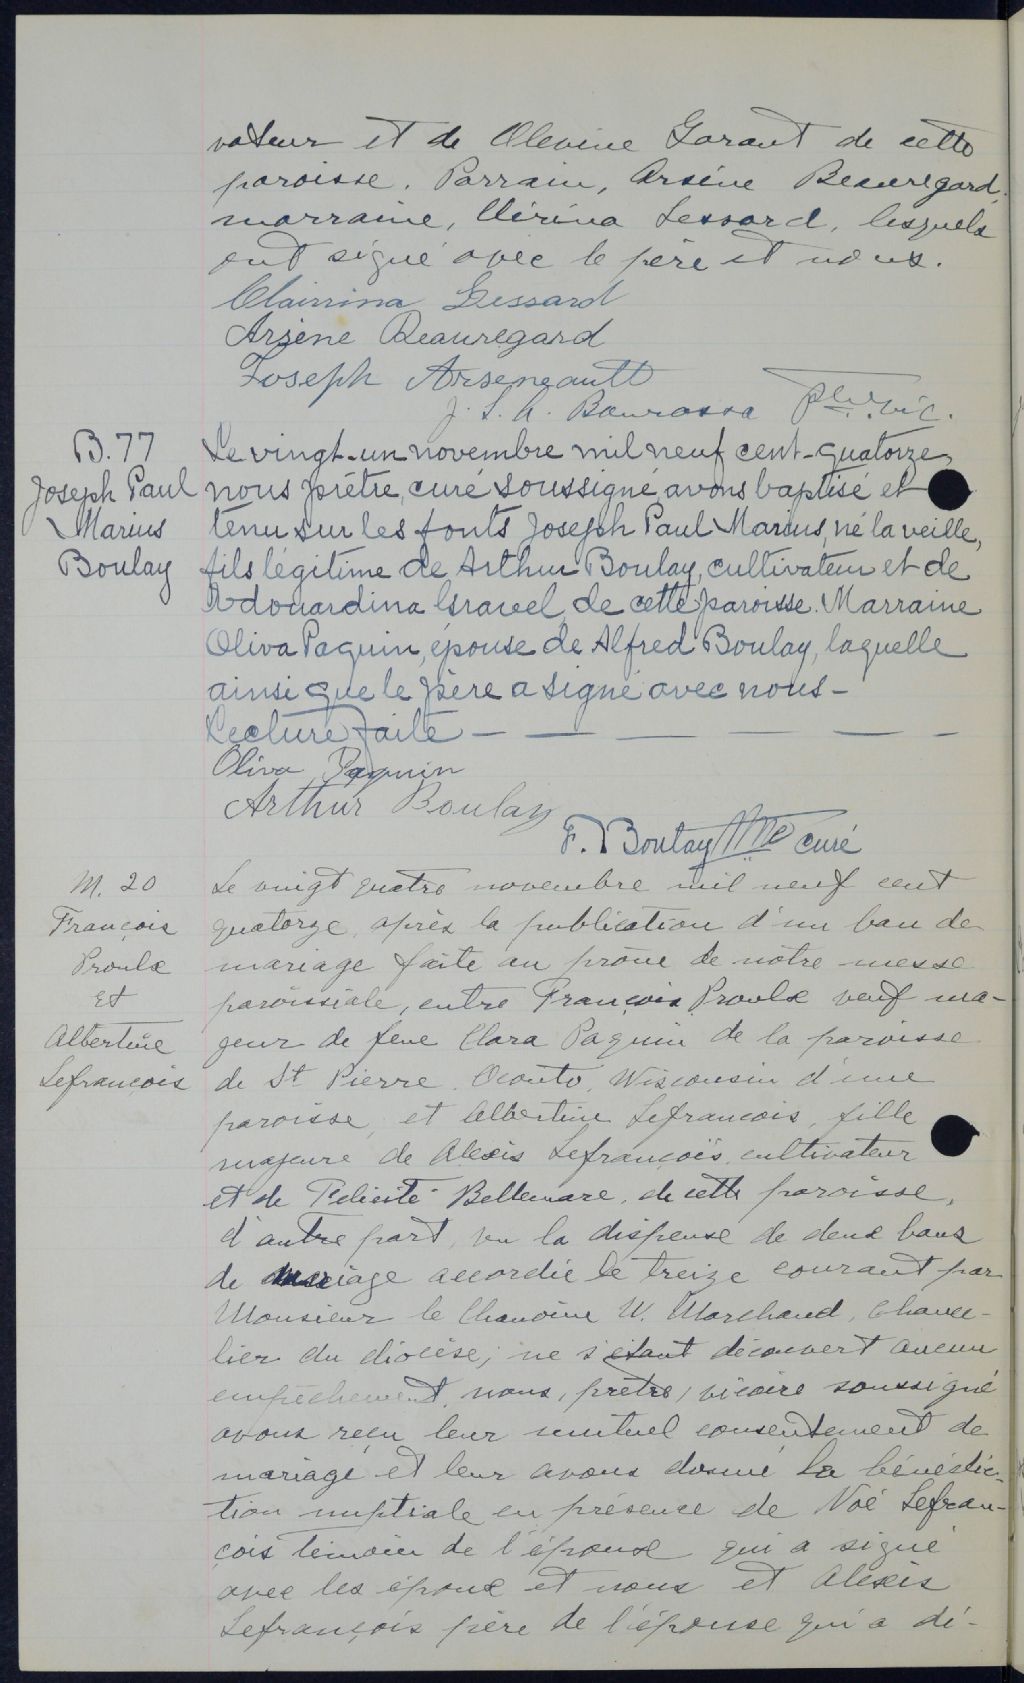 vateur et de Olevine Garant de cette
paroisse. Parrain, Arsène Beauregard,
marraine, Clérina Lessard, lesquels
ont signé avec le père et nous.
Clairrina Lessard
Arsène Beauregard
Joseph Arseneautt
J. S. A. Bourassa Ptre. vic.
B. 77
Joseph Paul
Marius
Boulay
Le vingt-un novembre mil neuf cent-quatorze,
nous prêtre, curé soussigné, avons baptisé et
tenu sur les fonts Joseph Paul Marius, né la veille,
fils légitime de Arthur Boulay, cultivateur et de
Edouardina Gravel, de cette paroisse. Marraine
Oliva Paquin, épouse de Alfred Boulay, laquelle
ainsi que le père a signé avec nous –
Lecture faite – — — — — –
Oliva Paquin
Arthur Boulay
F. Boulay Ptre curé
M. 20
François
Proulx
et
Albertine
Lefrançois
Le vingt quatre novembre mil neuf cent
quatorze, après la publication d'un ban de
mariage faite au prône de nôtre messe
paroissiale, entre François Proulx veuf ma-
jeur de feue Clara Paquin de la paroisse
de St Pierre, Oconto, Wisconsin d'une
paroisse, et Albertine Lefrancois, fille
majeure de Alexis Lefrançois, cultivateur
et de Félicité Bellemare, de cette paroisse,
d'autre part, vu la dispense de deux bans
de mariage accordée le treize courant par
Monsieur le Chanoine U. Marchand, Chance-
lier du diocèse; ne s'étant découvert aucun
empêchement, nous, prêtre, vicaire soussigné
avons reçu leur mutuel consentement de
mariage et leur avons donné la bénédic-
tion nuptiale en présence de Noé Lefran-
çois témoin de l'épouse qui a signé
avec les époux et nous et Alexis
Lefrançois père de l'épouse qui a dé-